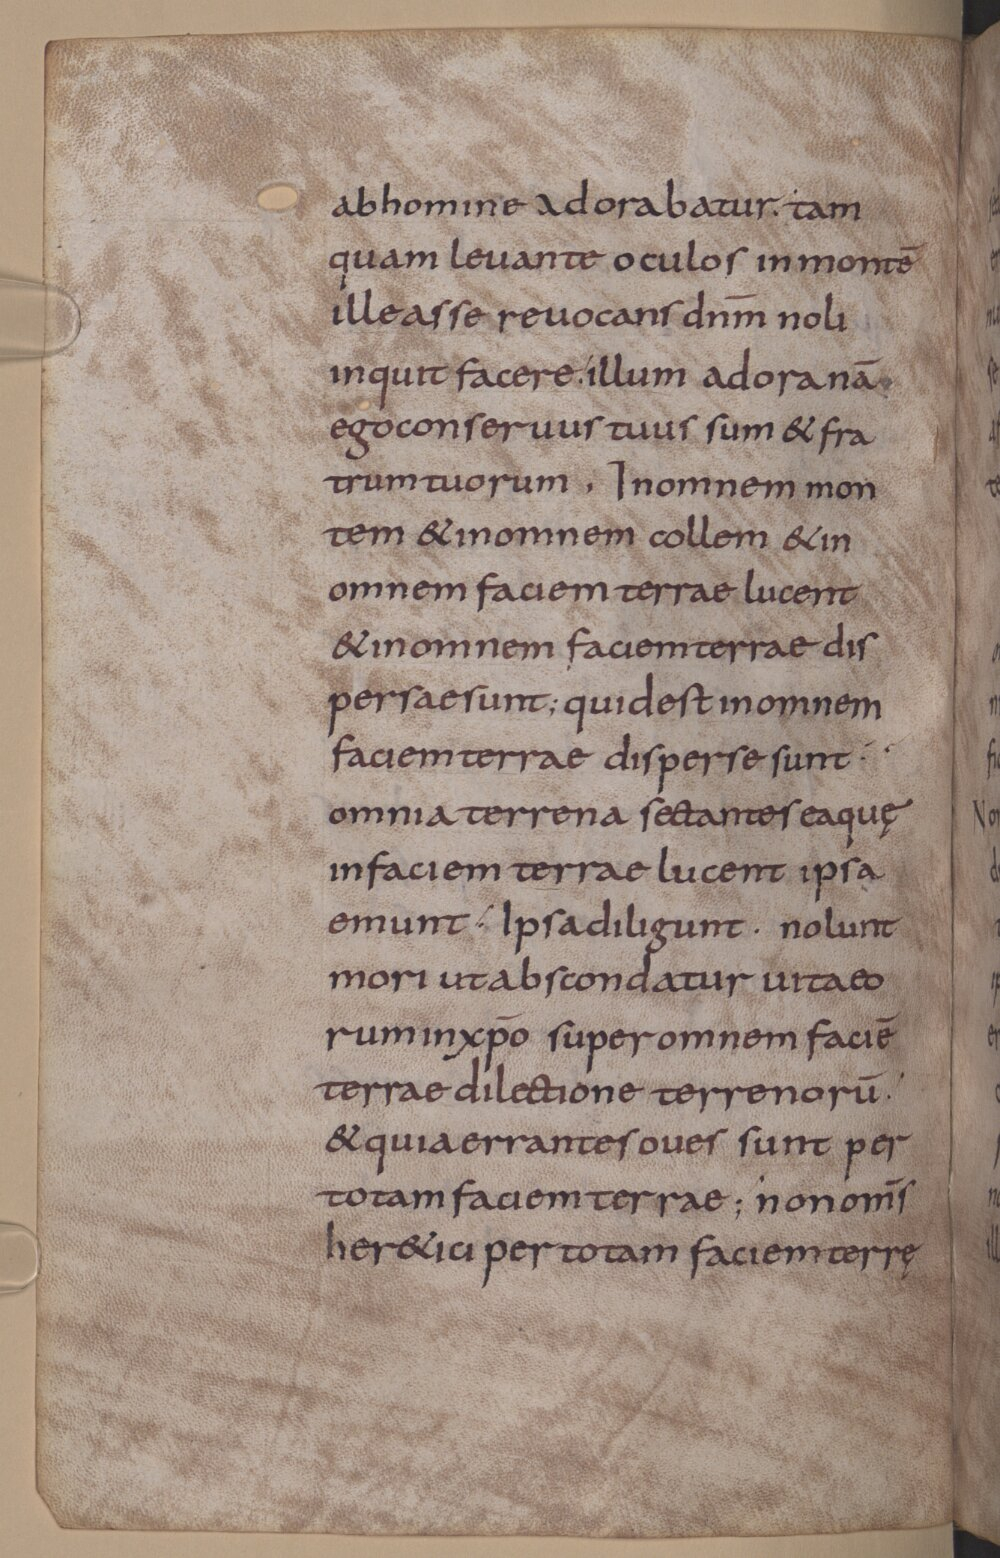 ab homine adorabatur. tam
quam levante oculos in montē
ille a sse revocans dn̄m noli
inquit facere. illum adora nā
ego conservus tuus sum & fra
trum tuorum . In omnem mon
tem & in omnem collem & in
omnem faciem terrae lucent
& in omnem faciem terrae dis
persae sunt; quid est in omnem
faciem terrae disperse sunt ·
omnia terrena sectantes ea quę
in faciem terrae lucent ipsa
emunt · Ipsa diligunt · nolunt
mori ut abscondatur vita eo
rum in xp̄o super omnem faciē
terrae dilectione terrenorū.
& quia errantes oves sunt per
totam faciem terrae ; non om̄s
her&ici per totam faciem terrę